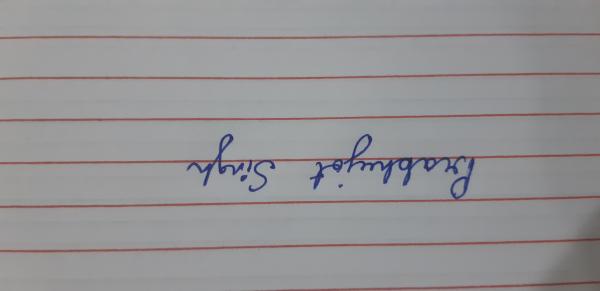 Prabhujot Singh